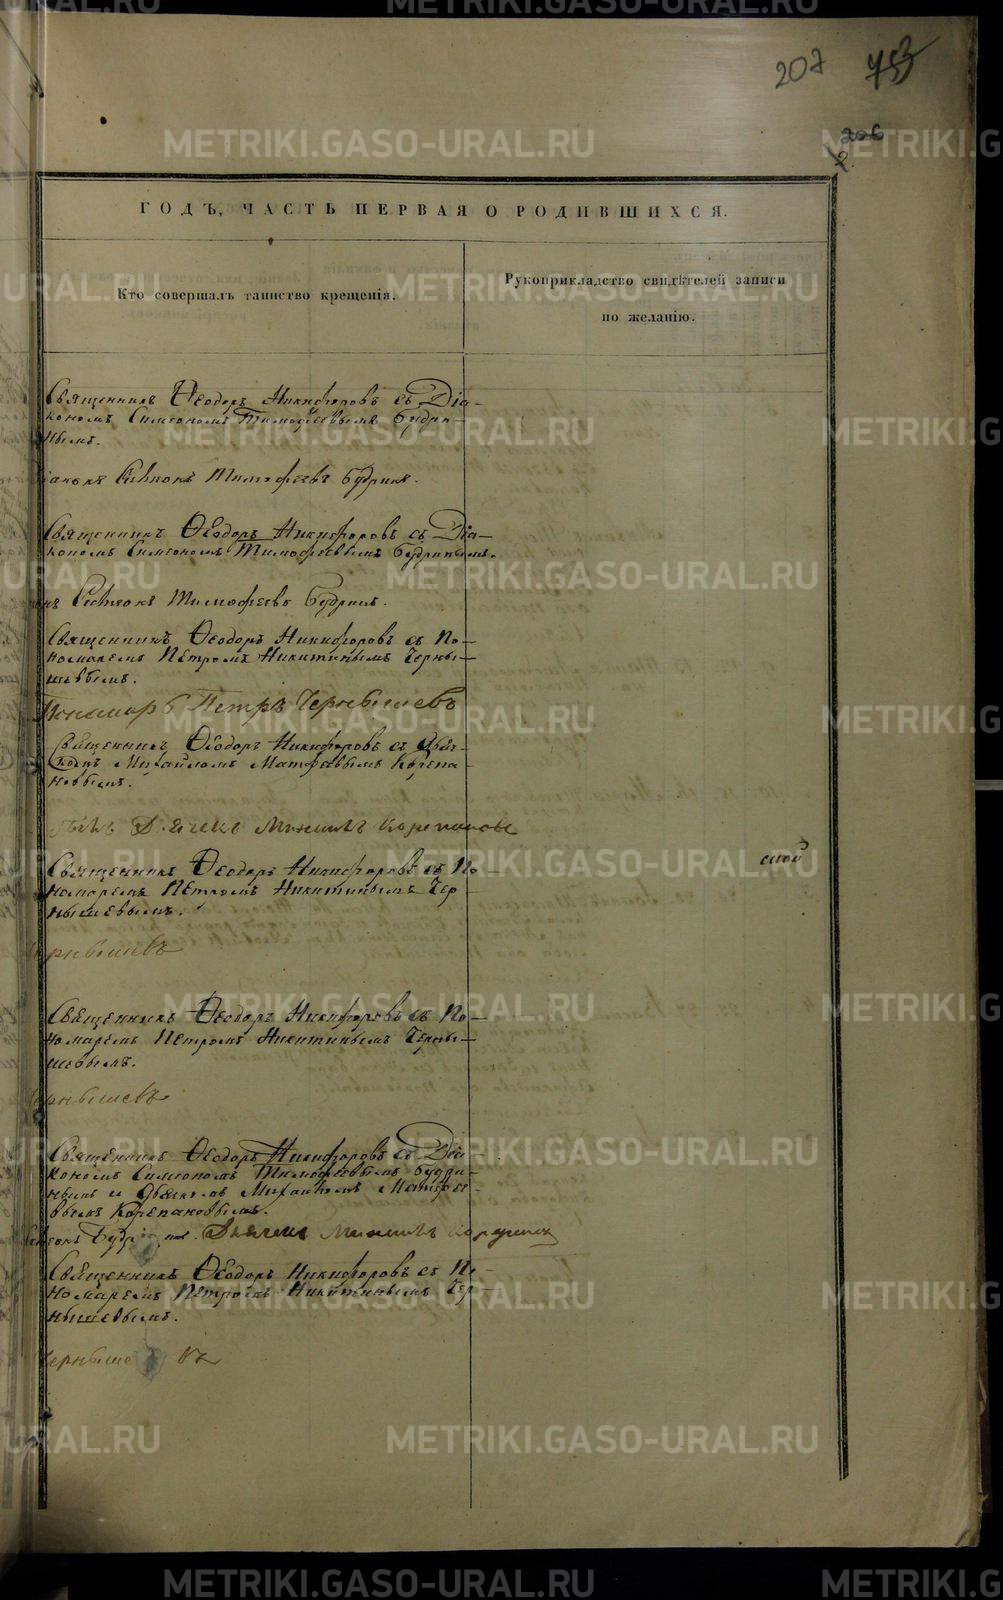 207 753
206
ГОДЪ, ЧАСТЬ ПЕРВАЯ О РОДИВШИХСЯ.
Кто совершалъ таинство крещенія.
Рукоприкладство свидѣтелей записи
по желанію.
Священникъ Ѳеодоръ Никифоровъ съ Діа-
кономъ Симеономъ Тимофеевымъ Будри-
нымъ.
Симеонъ Тимофеевъ Будринъ.
Священникъ Ѳеодоръ Никифоровъ съ Діа-
кономъ Симеономъ Тимофеевымъ Будринымъ.
Симеонъ Тимофеевъ Будринъ.
Священникъ Ѳеодоръ Никифоровъ съ По-
номаремъ Петромъ Никитинымъ Черны-
шевымъ.
Пономарь Петръ Чернышевъ
Священникъ Ѳеодоръ Никифоровъ съ Дьяч-
комъ Михаиломъ Матфеевымъ Корепа-
новымъ.
Дьячекъ Михаилъ Корепановъ
Священникъ Ѳеодоръ Никифоровъ съ По-
номаремъ Петромъ Никитинымъ Чер
нышевымъ.
рнышевъ
Священникъ Ѳеодоръ Никифоровъ съ По-
номаремъ Петромъ Никитинымъ Черны-
шевымъ.
рнышевъ
Священникъ Ѳеодоръ Никифоровъ съ Діа-
кономъ Симеономъ Тимофеевымъ Будри-
нымъ и Дьячкомъ Михаиломъ Матфее-
вымъ Корепановымъ.
Будринъ. Дьячекъ Михаилъ
Священникъ Ѳеодоръ Никифоровъ съ По-
номаремъ Петромъ Никитинымъ Чер-
нышевымъ.
Чернышевъ
METRIKI.GASO-URAL.RU